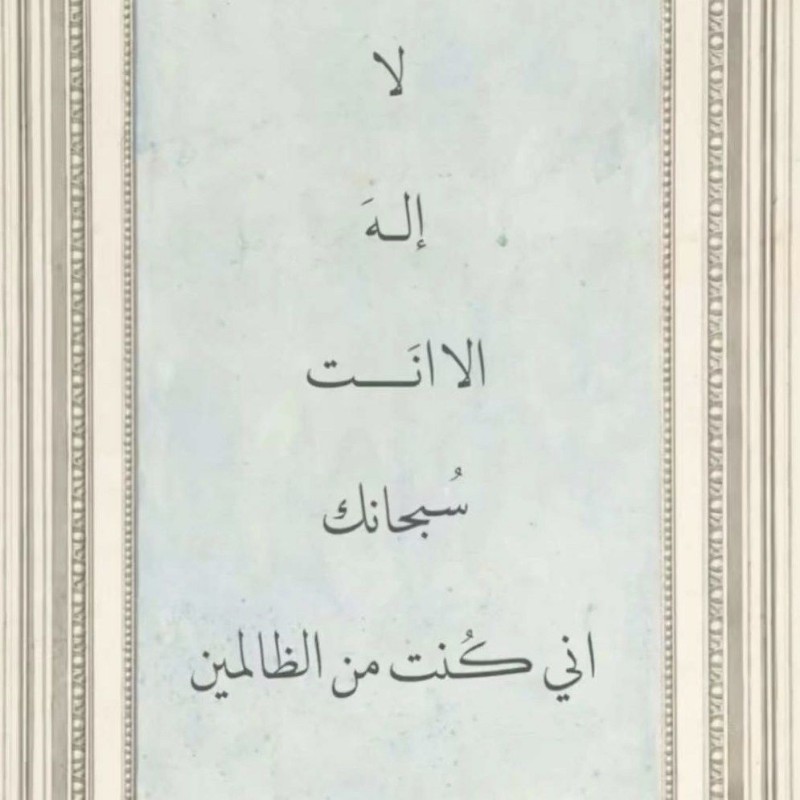 لا
إلـهَ
الا انَــت
سُبحانك
اني كُنت من الظالمين